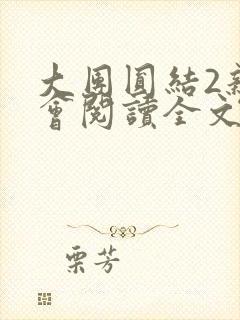 大團圓結2新
會閱讀全文
栗芳